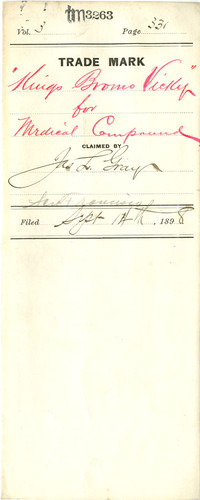 tm3263
Vol. 3 Page 331
TRADE MARK
"Kings Bromo Vicky"
for
Medical Compound
CLAIMED BY
Jas L. Gray
Filed Sept 14th, 1898